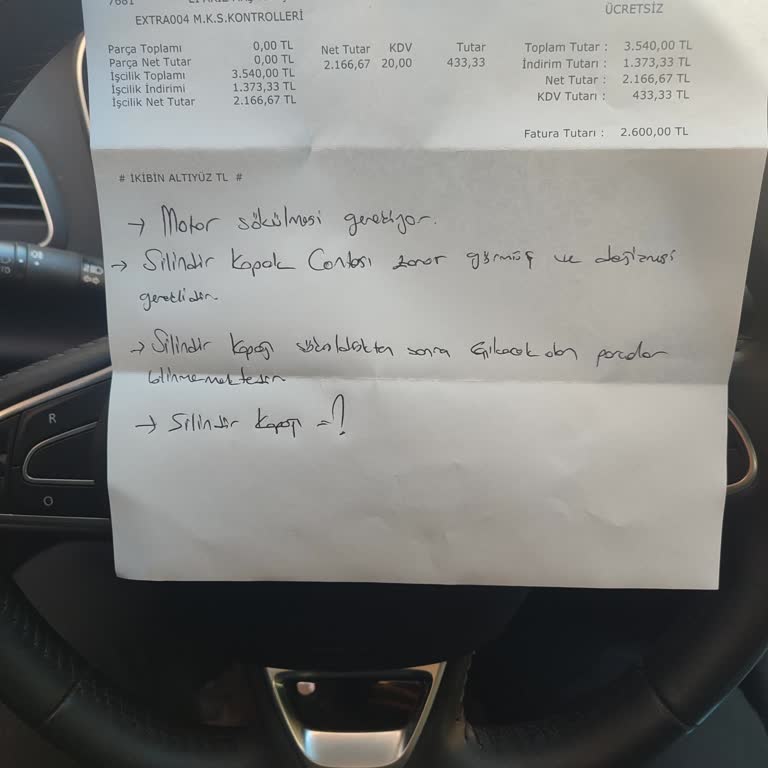 7681
EXTRA004 M.K.S.KONTROLLERİ ÜCRETSİZ
Parça Toplamı 0,00 TL Net Tutar KDV Tutar Toplam Tutar : 3.540,00 TL
Parça Net Tutar 0,00 TL 2.166,67 20,00 433,33 İndirim Tutarı : 1.373,33 TL
İşcilik Toplamı 3.540,00 TL Net Tutar : 2.166,67 TL
İşcilik İndirimi 1.373,33 TL KDV Tutarı : 433,33 TL
İşcilik Net Tutar 2.166,67 TL
Fatura Tutarı : 2.600,00 TL
# İKİBİN ALTIYÜZ TL #
→ Motor sökülmesi gerekiyor.
→ Silindir Kapak Contası zarar görmüş ve değişmesi
gereklidir.
→ Silindir Kapağı söküldükten sonra çıkacak olan parçalar
bilinmemektedir
→ Silindir Kapağı =?
R
O